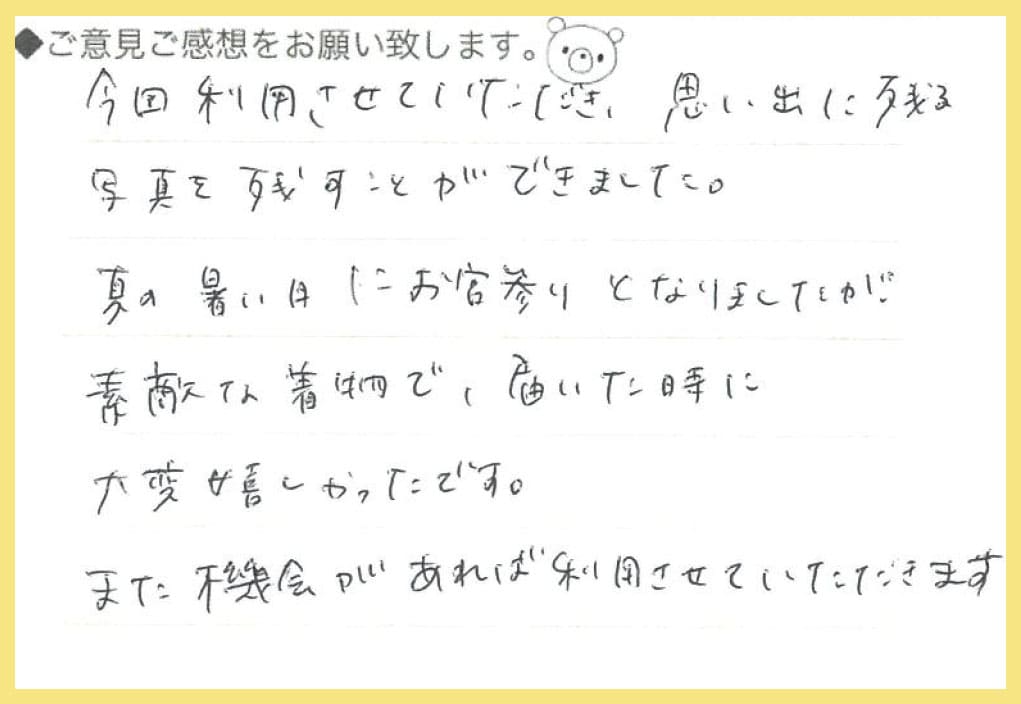 ◆ご意見ご感想をお願い致します。
今回利用させていただき、思い出に残る
写真を残すことができました。
夏の暑い日にお宮参りとなりましたが
素敵な着物で、届いた時に
大変嬉しかったです。
また機会があれば利用させていただきます